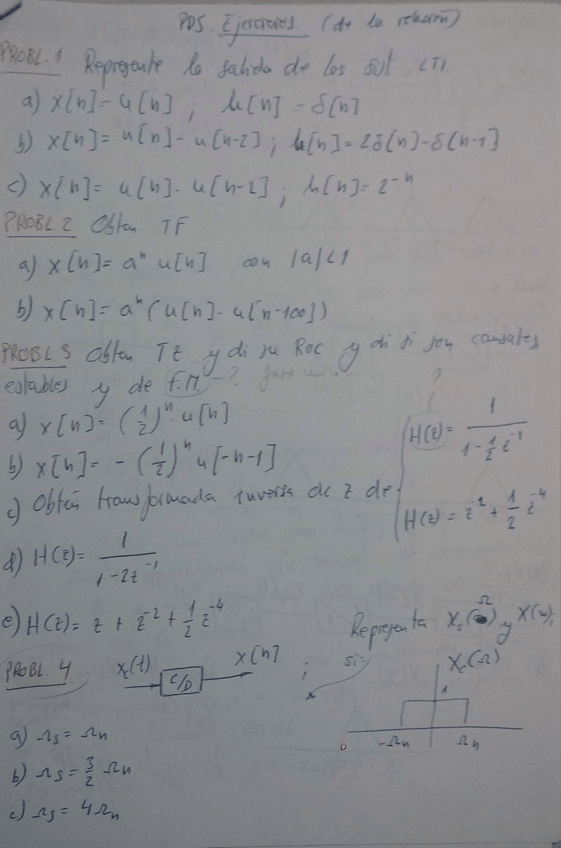 PDS. Ejercicios (de la relación)
PROBL. 1 Represente la salida de los sist LTI
a) x[n] = u[n] ; h[n] = δ[n]
b) x[n] = u[n] - u[n-2] ; h[n] = 2δ[n] - δ[n-1]
c) x[n] = u[n] - u[n-2] ; h[n] = 2^-n
PROBL. 2 Obten TF
a) x[n] = a^n u[n] con |a|<1
b) x[n] = a^n (u[n] - u[n-100])
PROBL 3 Obten TZ y di su ROC y di si son causales
estables y de F.M. - ?
a) x[n] = (1/2)^n u[n]
b) x[n] = -(1/2)^n u[-n-1]
c) Obtén transformada inversa de z de
H(z) = 1 / (1 - 1/2 z^-1)
H(z) = z^-2 + 1/2 z^-4
d) H(z) = 1 / (1 - 2z^-1)
e) H(z) = z + z^-2 + 1/2 z^-4
PROBL. 4
xc(t) C/D x[n] ;
Representa Xs(Ω) y X(ω),
si:
Xc(Ω)
1
-Ωn Ωn
a) Ωs = Ωn
b) Ωs = 3/2 Ωn
c) Ωs = 4Ωn